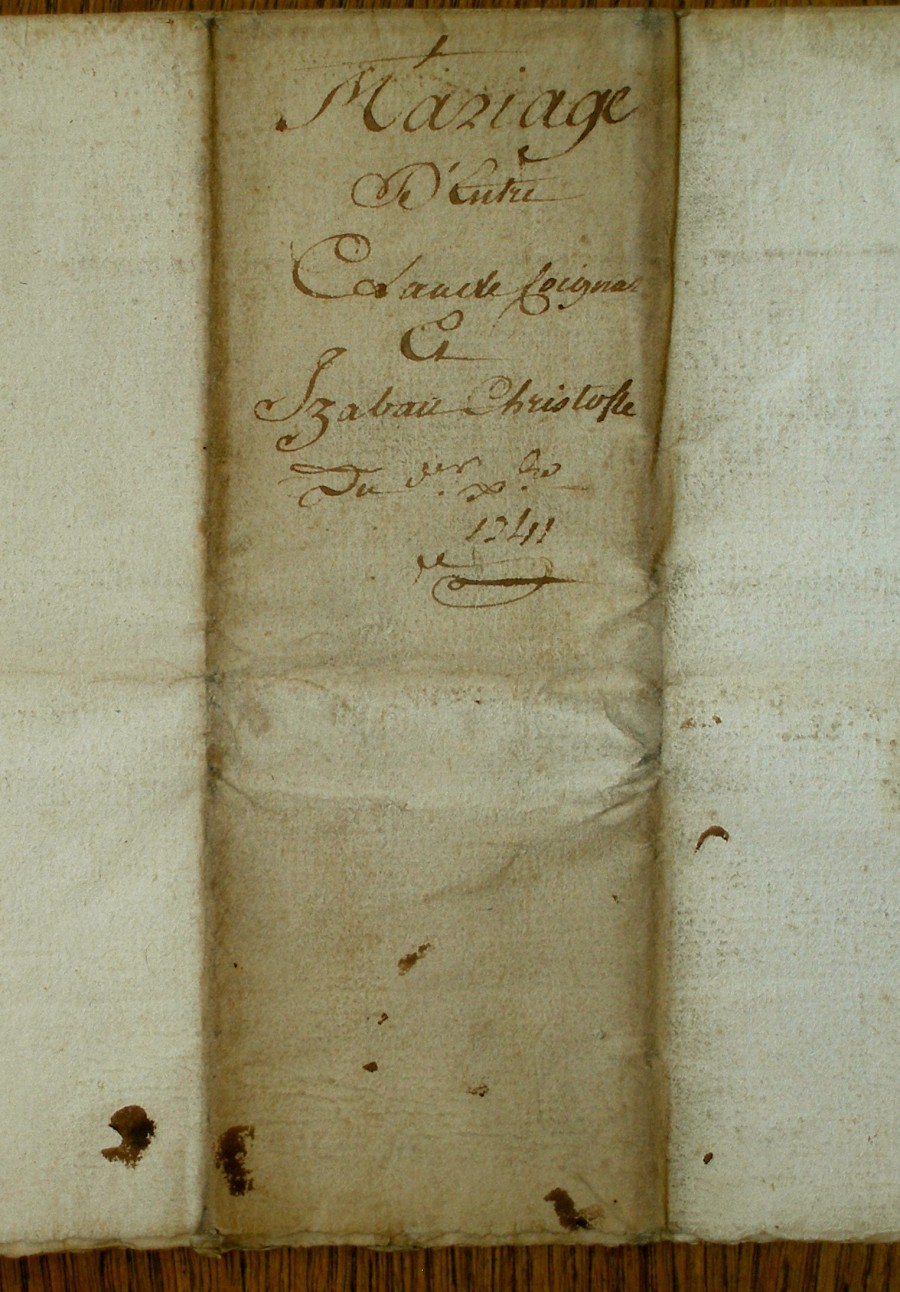 Mariage
D'Entre
Claude Coignac
Et
Izabau Christofle
Du der. xbre
1741